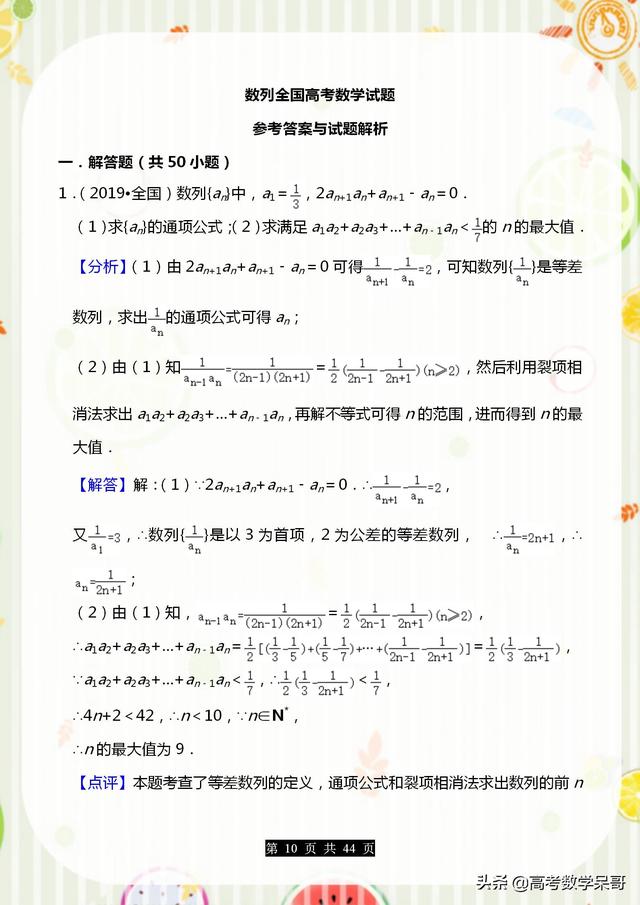 数列全国高考数学试题
参考答案与试题解析
一．解答题（共 50 小题）
1．（2019•全国）数列{aₙ}中，a₁=1/3，2aₙ₊₁aₙ+aₙ₊₁﹣aₙ=0．
（1）求{aₙ}的通项公式；（2）求满足 a₁a₂+a₂a₃+…+aₙ₋₁aₙ<1/7的 n 的最大值．
【分析】（1）由 2aₙ₊₁aₙ+aₙ₊₁﹣aₙ=0 可得1/aₙ₊₁-1/aₙ=2，可知数列{1/aₙ}是等差
数列，求出1/aₙ的通项公式可得 aₙ；
（2）由（1）知1/(aₙ₋₁aₙ)=1/((2n-1)(2n+1))=1/2(1/(2n-1)-1/(2n+1))(n⩾2)，然后利用裂项相
消法求出 a₁a₂+a₂a₃+…+aₙ₋₁aₙ，再解不等式可得 n 的范围，进而得到 n 的最
大值．
【解答】解：（1）∵2aₙ₊₁aₙ+aₙ₊₁﹣aₙ=0．∴1/aₙ₊₁-1/aₙ=2，
又1/a₁=3，∴数列{1/aₙ}是以 3 为首项，2 为公差的等差数列， ∴1/aₙ=2n+1，∴
aₙ=1/(2n+1)；
（2）由（1）知，aₙ₋₁aₙ=1/((2n-1)(2n+1))=1/2(1/(2n-1)-1/(2n+1))(n⩾2)，
∴a₁a₂+a₂a₃+…+aₙ₋₁aₙ=1/2[(1/3-1/5)+(1/5-1/7)+…+(1/(2n-1)-1/(2n+1))]=1/2(1/3-1/(2n+1))，
∵a₁a₂+a₂a₃+…+aₙ₋₁aₙ<1/7，∴1/2(1/3-1/(2n+1))<1/7，
∴4n+2<42，∴n<10，∵n∈N*，
∴n 的最大值为 9．
【点评】本题考查了等差数列的定义，通项公式和裂项相消法求出数列的前 n
第 10 页 共 44 页
头条 @高考数学呆哥